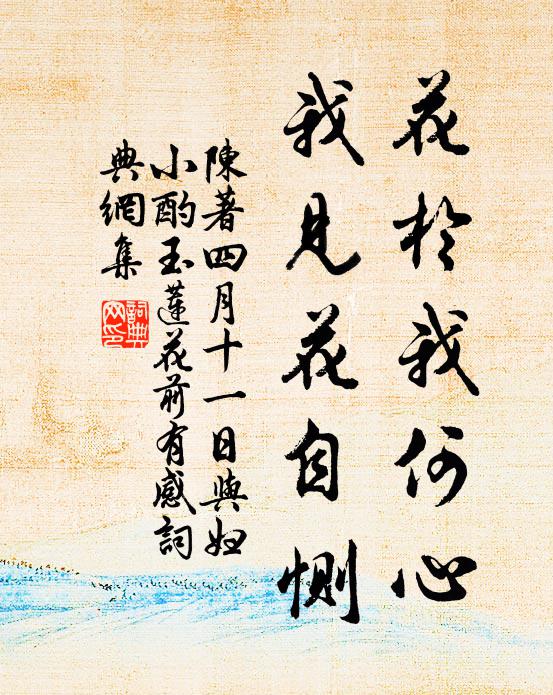 花於我何心
我見花自惻
陳著四月十一日與妇
小酌玉蓮花前有感詞
典網集
詞典
网印